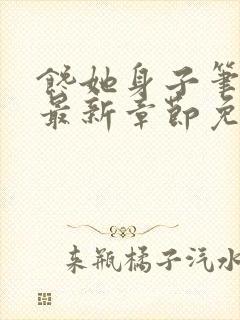 馋她身子笔
最新章节免
来瓶橘子汽水